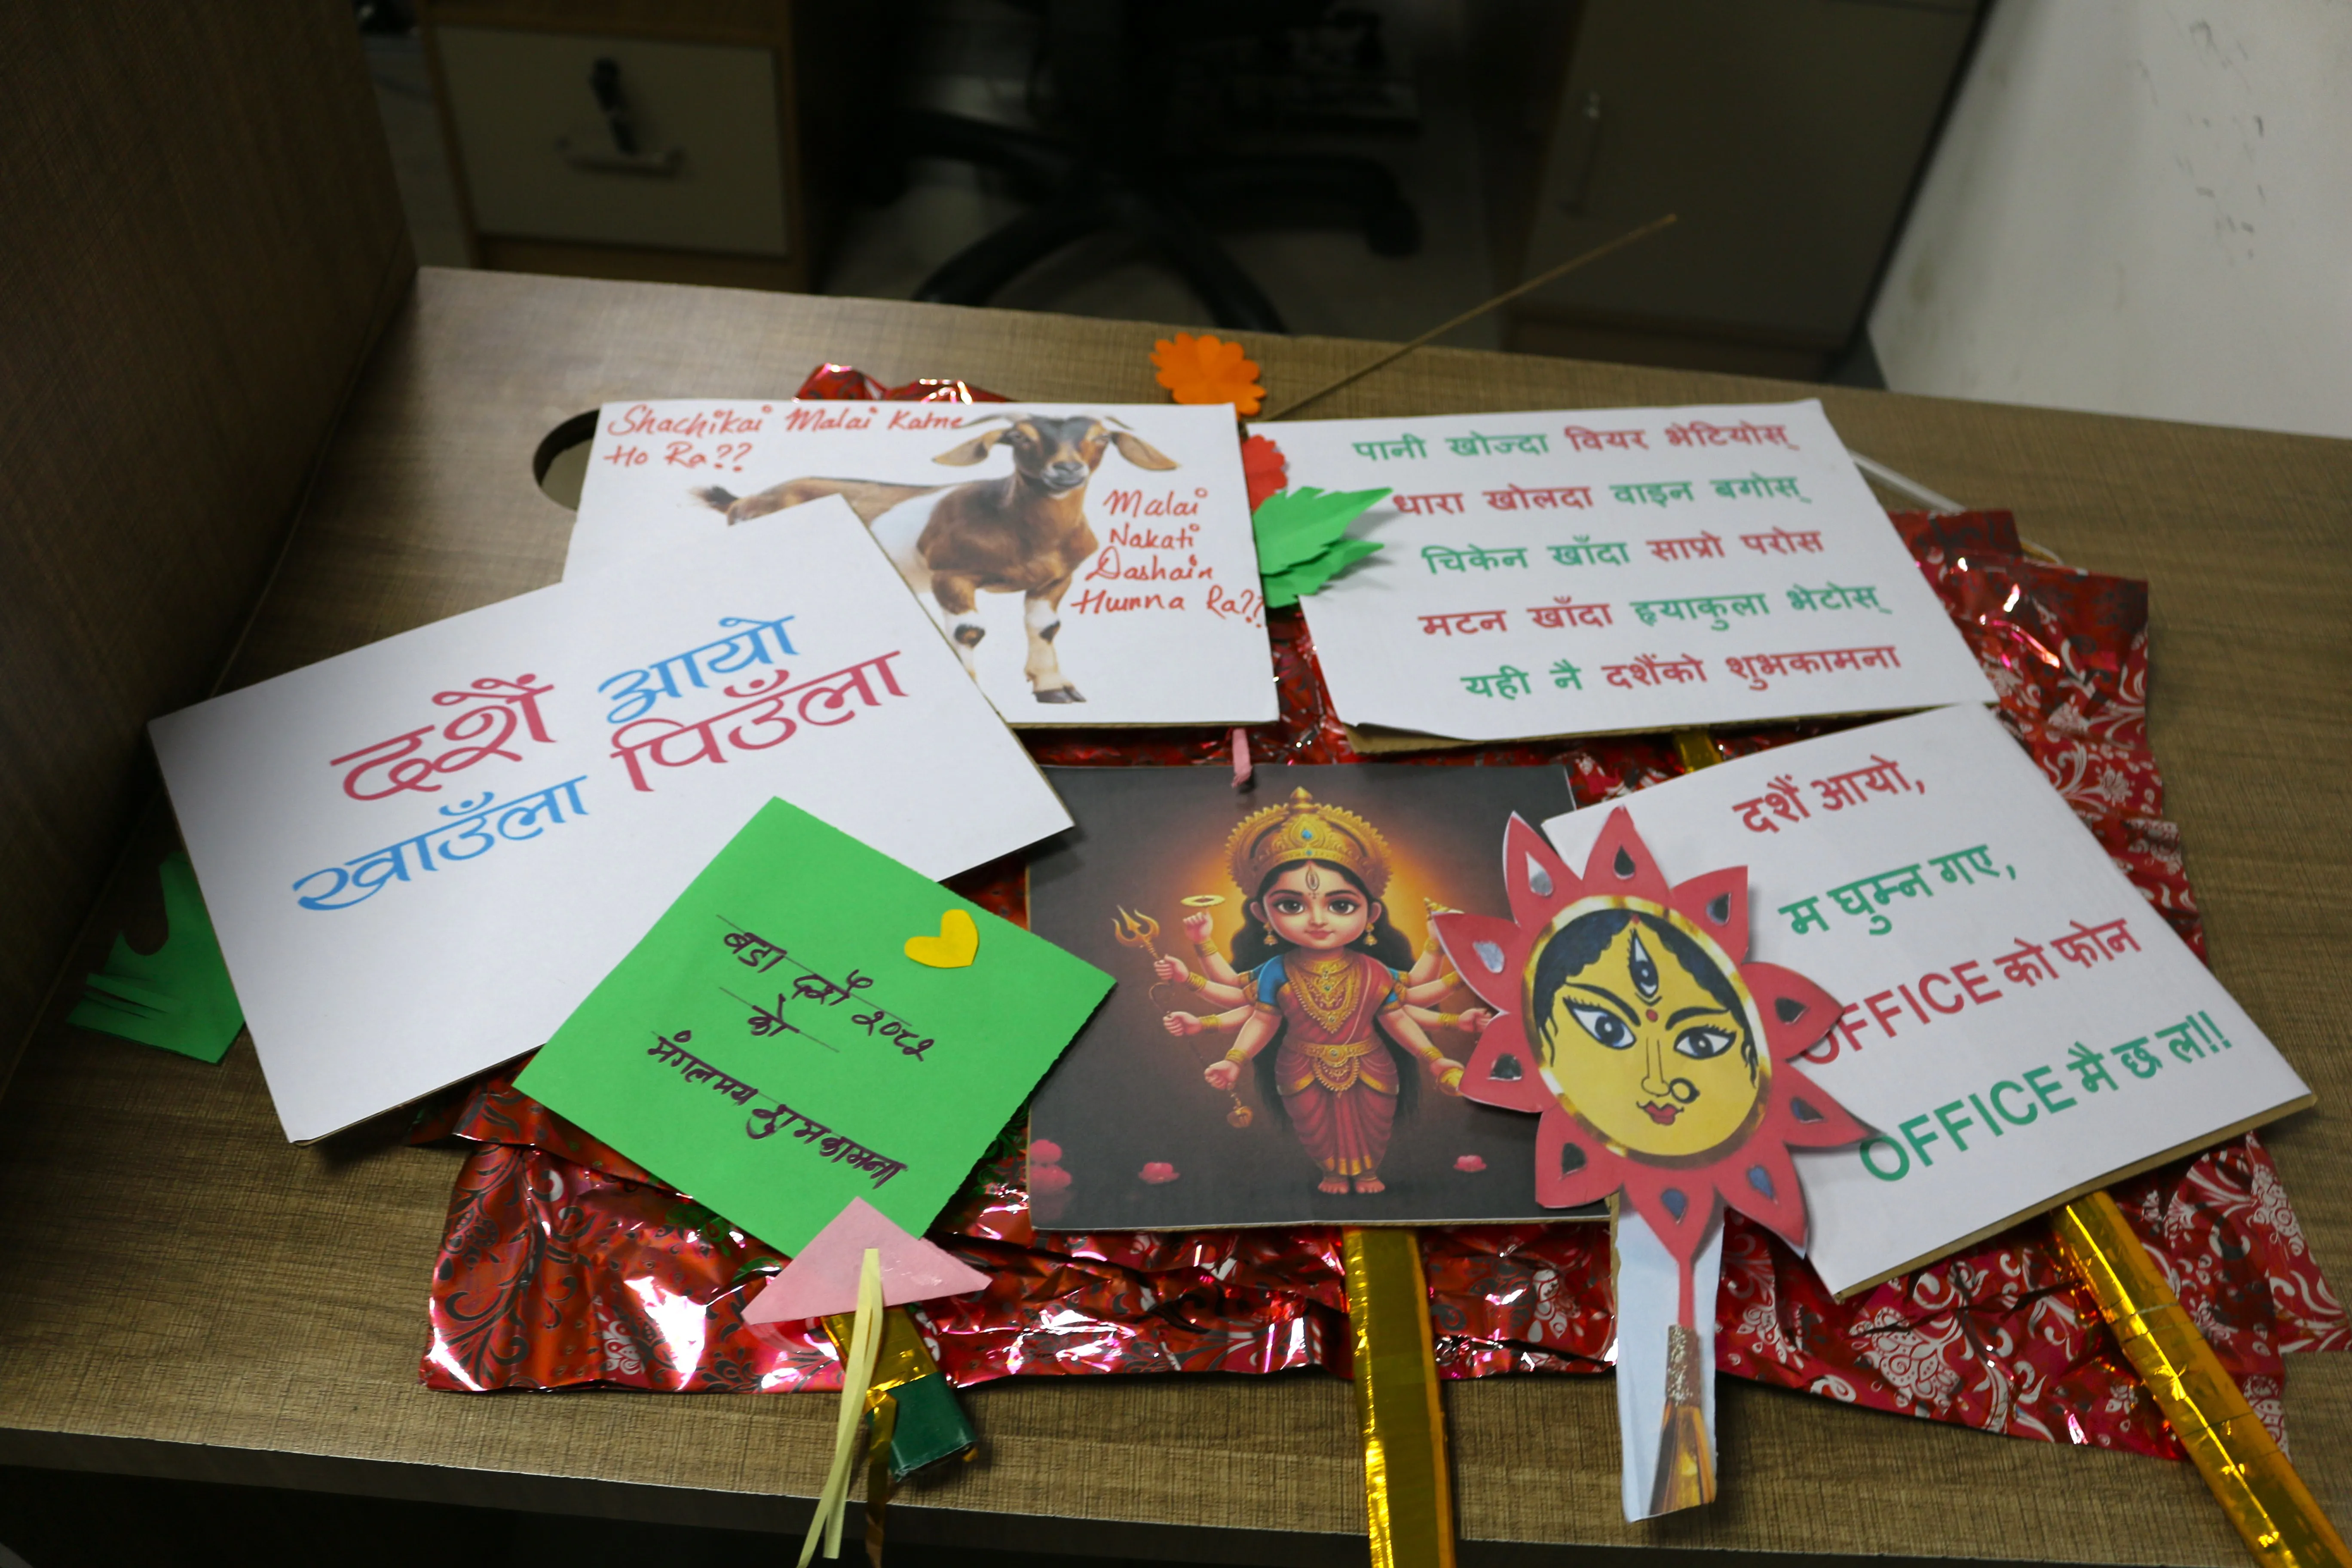 Shachikai Malai Katne
Ho Ra??
Malai
Nakati
Dashain
Humna Ra??
पानी खोज्दा वियर भेटियोस्
धारा खोलदा वाइन बगोस्
चिकेन खाँदा साप्रो परोस
मटन खाँदा ह्याकुला भेटोस्
यही नै दशैंको शुभकामना
दशैं आयो
खाउँला पिउँला
बडा दशैं २०८२
को
मंगलमय शुभकामना
दशैं आयो,
म घुम्न गए,
OFFICE को फोन
OFFICE मै छ ल!!